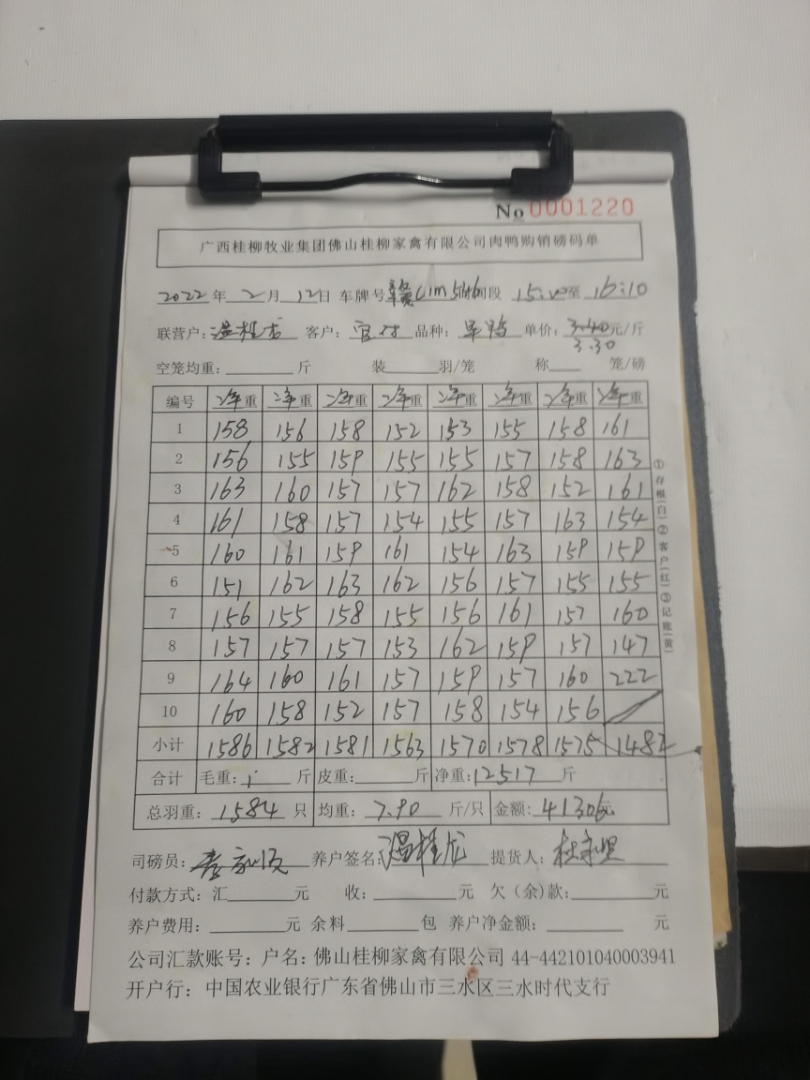 No 0001220
广西桂柳牧业集团佛山桂柳家禽有限公司肉鸭购销磅码单
2022 年 2 月 12日 车牌号 段 15:00至 16:10
联营户: 客户: 品种: 单价: 3.40元/斤
3.30
空笼均重: 斤 装 羽/笼 称 笼/磅
编号 重 重 重 重 重 重 重 重
1 158 156 158 152 153 155 158 161
2 156 155 159 155 155 157 158 163
3 163 160 157 157 162 158 152 161
4 161 158 157 154 155 157 163 154
5 160 161 159 161 154 163 159 159
6 151 162 163 162 156 157 155 155
7 156 155 158 155 156 161 157 160
8 157 157 157 153 162 159 157 147
9 164 160 161 157 159 157 160 222
10 160 158 152 157 158 154 156
小计 1586 1582 1581 1563 1570 1578 1575 1482
合计 毛重: 斤 皮重: 斤 净重: 12517 斤
总羽重: 1584 只 均重: 7.90 斤/只 金额: 41306元
司磅员: 养户签名: 温桂龙 提货人:
付款方式: 汇 元 收: 元 欠(余)款: 元
养户费用: 元 余料 包 养户净金额: 元
公司汇款账号: 户名: 佛山桂柳家禽有限公司 44-442101040003941
开户行: 中国农业银行广东省佛山市三水区三水时代支行
①存根(白)②客户(红)③记账(黄)